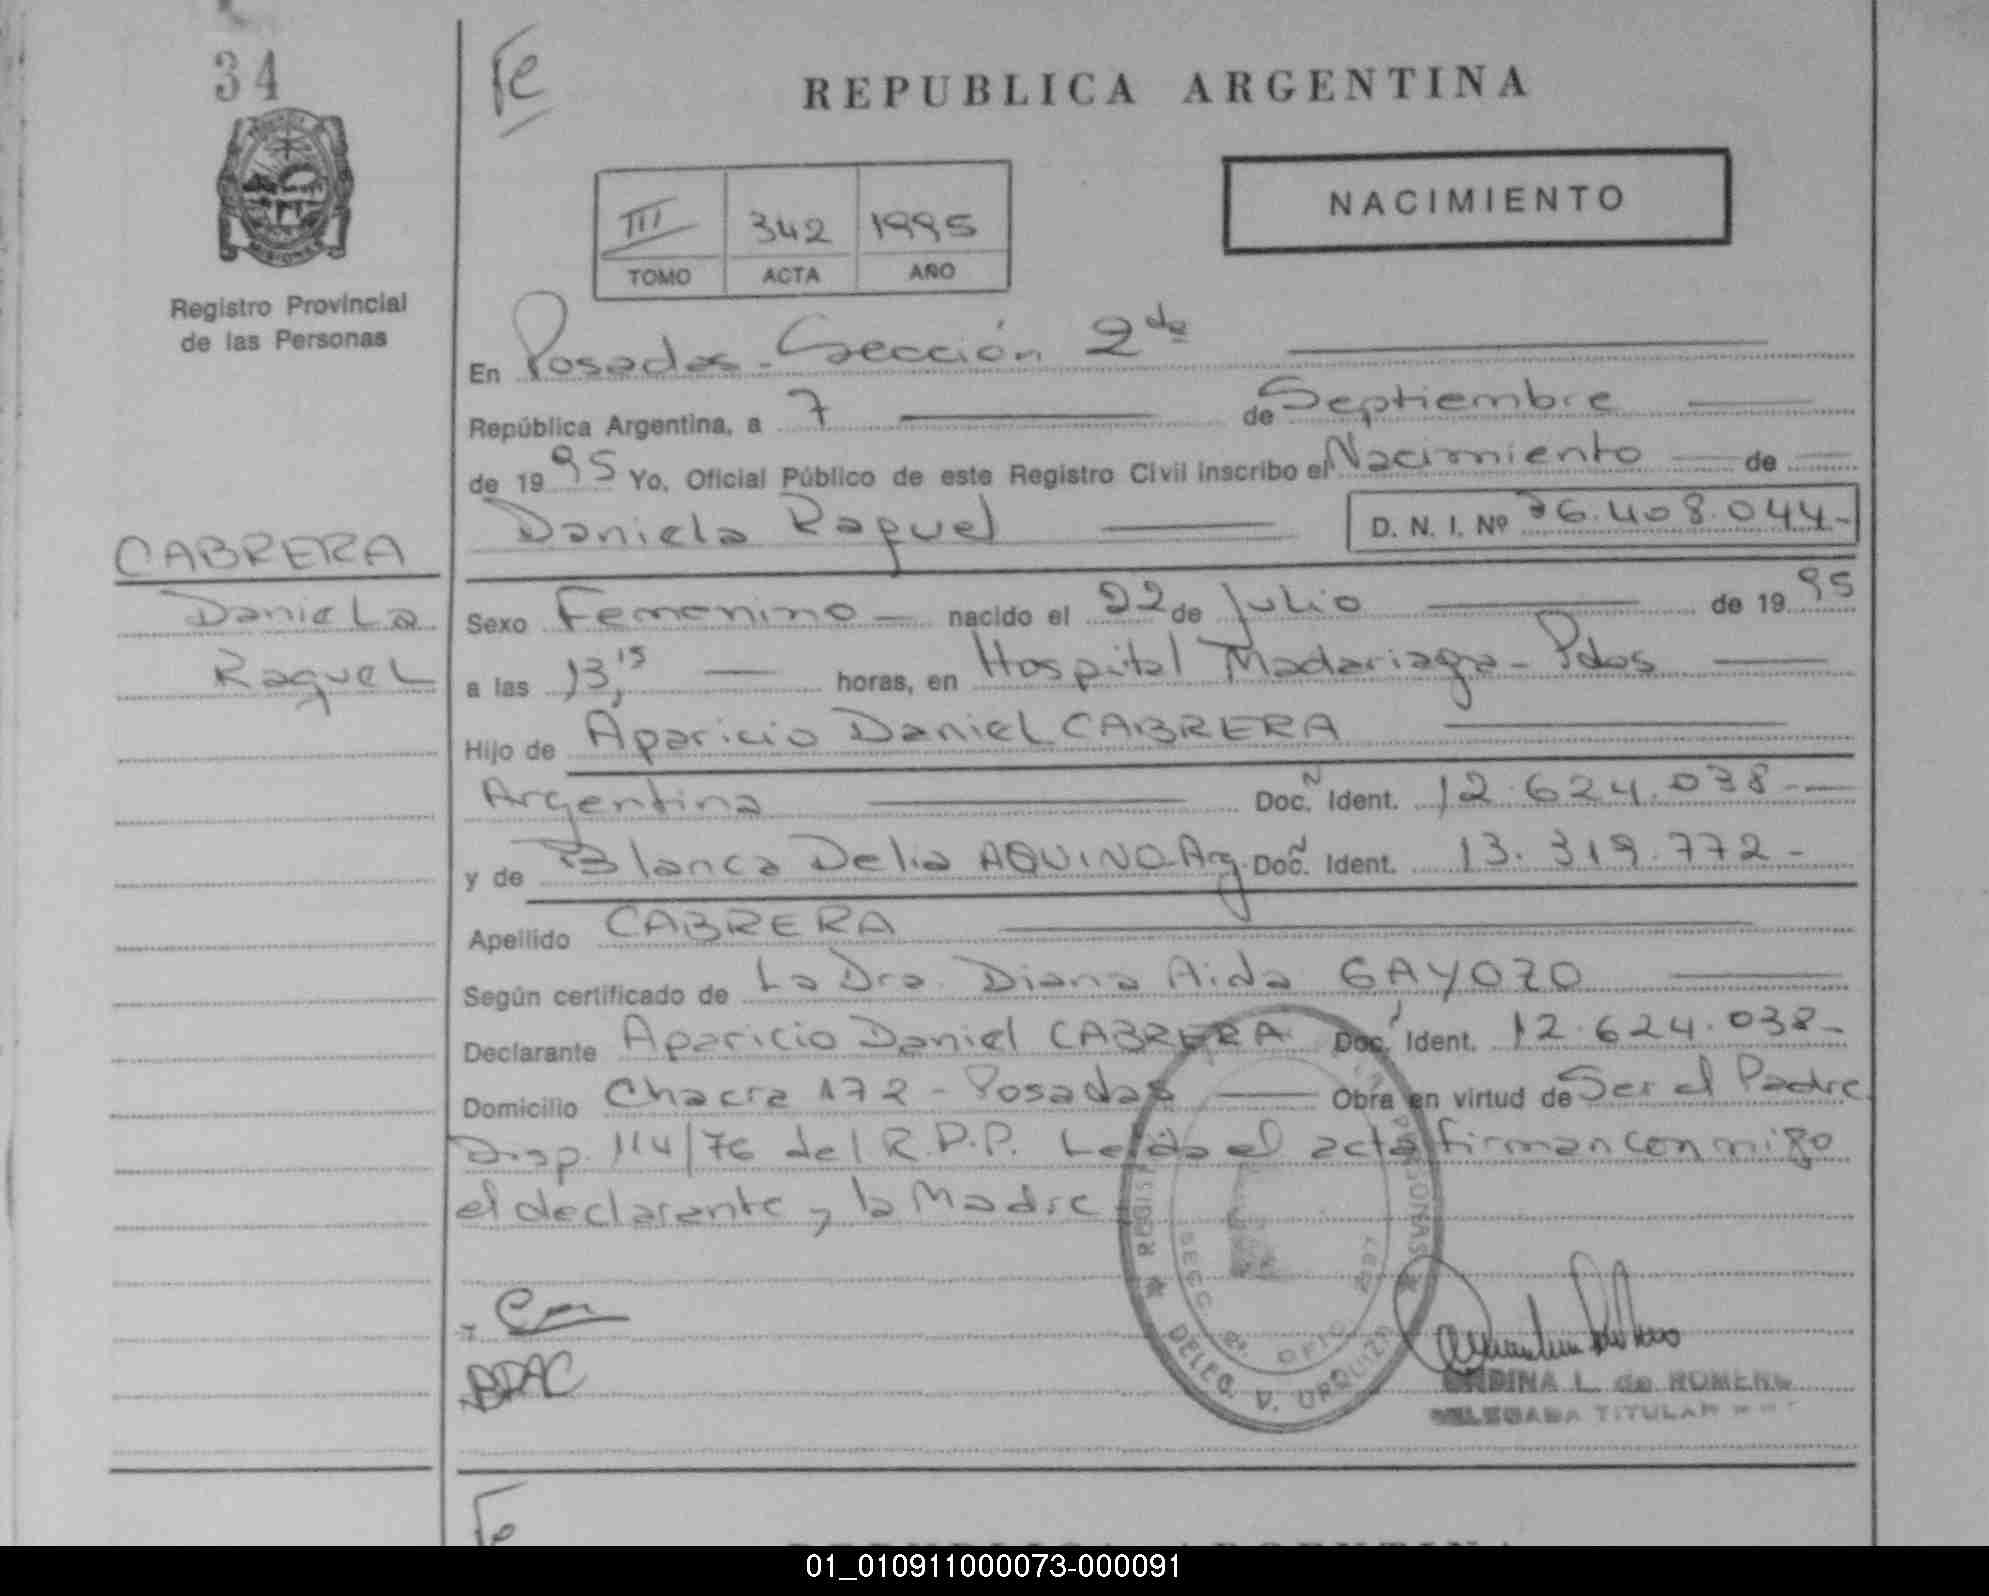 34
Fe
REPUBLICA ARGENTINA
NACIMIENTO
III 342 1995
TOMO ACTA AÑO
MISIONES
Registro Provincial
de las Personas
En Posadas - Sección 2da
República Argentina, a 7 de Septiembre
de 1995 Yo, Oficial Público de este Registro Civil inscribo el Nacimiento de
Daniela Raquel D. N. I. Nº 36.408.044-
CABRERA
Daniela
Raquel
Sexo Femenino nacido el 22 de Julio de 1995
a las 13,15 horas, en Hospital Madariaga - Pdas
Hijo de Aparicio Daniel CABRERA
Argentina Doc. N Ident. 12.624.038-
y de Blanca Delia AQUINO Arg. Doc. N Ident. 13.319.772-
Apellido CABRERA
Según certificado de La Dra. Diana Aida GAYOZO
Declarante Aparicio Daniel CABRERA Doc. Ident. 12.624.038-
Domicilio Chacra 172 - Posadas Obra en virtud de Ser el Padre
Disp. 114/76 del R.P.P. Leída el acta firman conmigo
el declarante y la Madre
DELEG. V. URQUIZA
SECC. 2a. OFIC
PERSONAS
ONDINA L. de ROMERO
DELEGADA TITULAR
Fe
REPUBLICA ARGENTINA
01_010911000073-000091